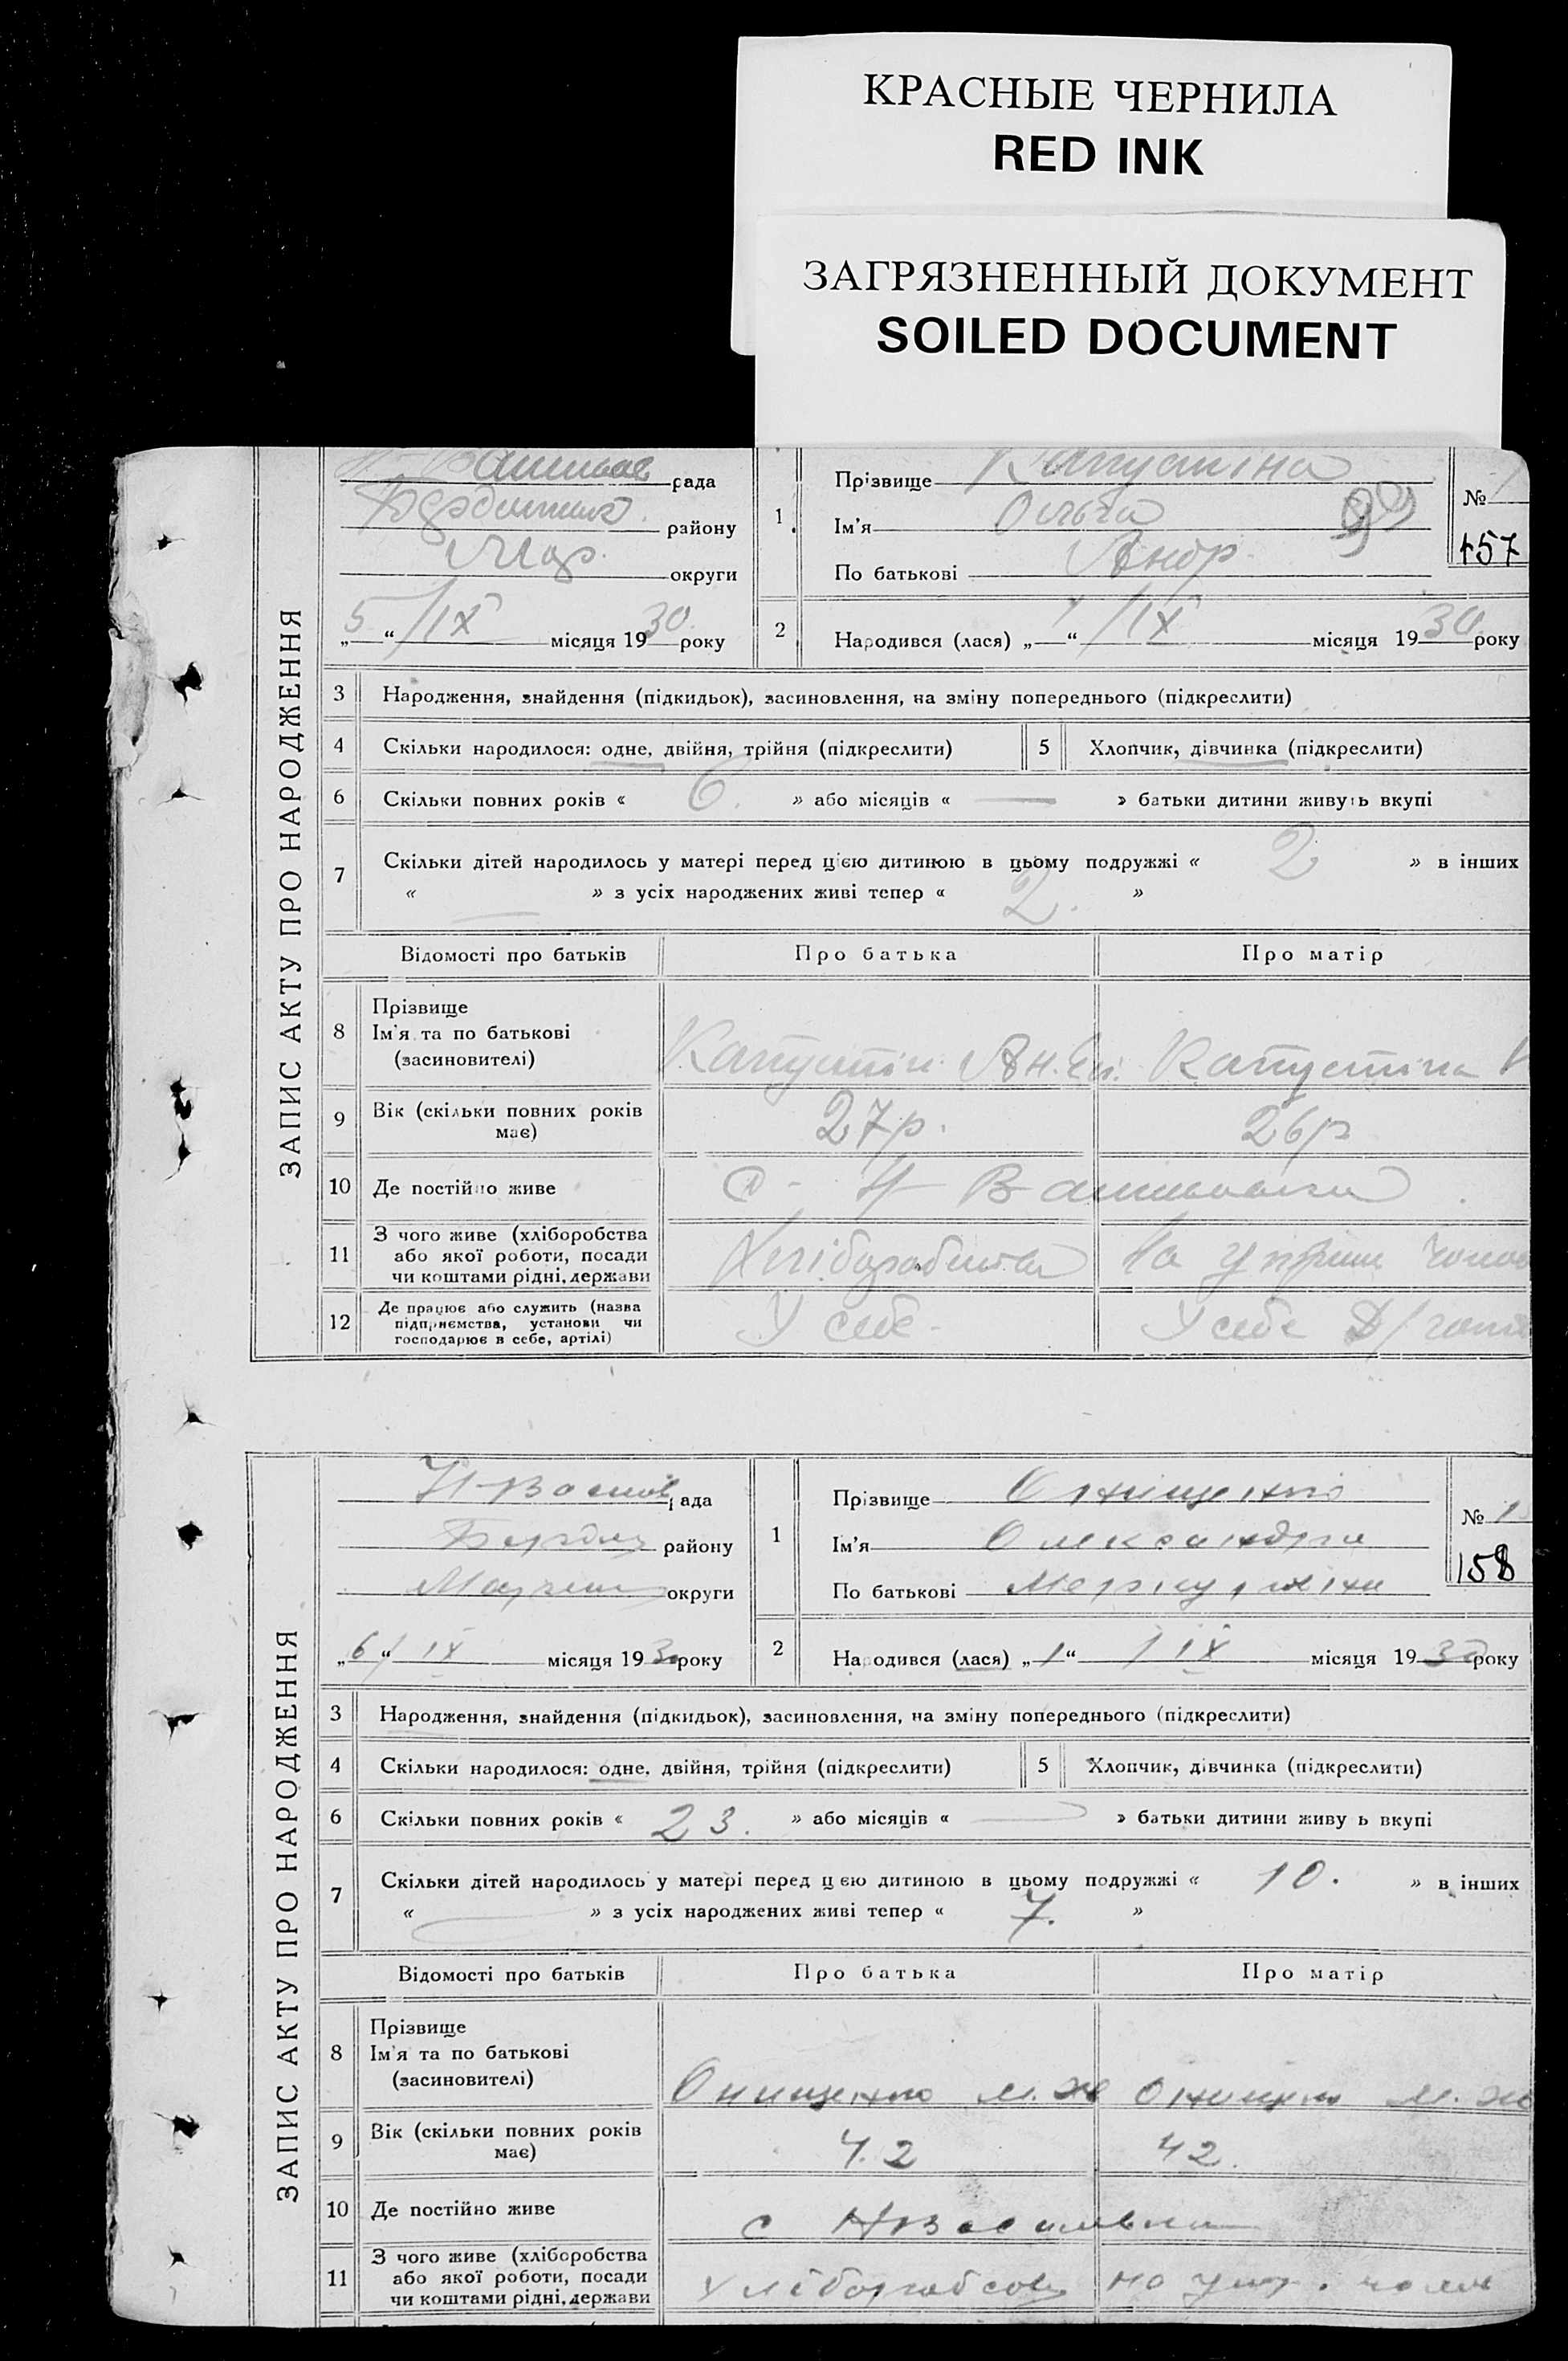 КРАСНЫЕ ЧЕРНИЛА
RED INK
ЗАГРЯЗНЕННЫЙ ДОКУМЕНТ
SOILED DOCUMENT
ЗАПИС АКТУ ПРО НАРОДЖЕННЯ
рада
району
Мар. округи
„5“ /IX місяця 1930 року
1
Прізвище Капустіна
Ім'я Ольга 99
По батькові Андр.
№
157
2 Народився (лася) „1“ /IX місяця 1930 року
3 Народження, знайдення (підкидьок), засиновлення, на зміну попереднього (підкреслити)
4 Скільки народилося: одне, двійня, трійня (підкреслити) 5 Хлопчик, дівчинка (підкреслити)
6 Скільки повних років « 6. » або місяців « — » батьки дитини живуть вкупі
7 Скільки дітей народилось у матері перед цією дитиною в цьому подружжі « 2 » в інших
« — » з усіх народжених живі тепер « 2. »
Відомості про батьків Про батька Про матір
8 Прізвище
Ім'я та по батькові
(засиновителі)
Капустін Ан. Капустіна
9 Вік (скільки повних років
має)
27р. 26р
10 Де постійно живе с. Н Васильовка
11 З чого живе (хліборобства
або якої роботи, посади
чи коштами рідні, держави
Хліборобства На утрим чолов
12 Де працює або служить (назва
підприємства, установи чи
господарює в себе, артілі)
У себе. У себе Д/госп
ЗАПИС АКТУ ПРО НАРОДЖЕННЯ
Н-Василь рада
району
округи
„6“ / IX місяця 1930 року
1
Прізвище Онищенко
Ім'я Олександра
По батькові
№ 1
158
2 Народився (лася) „1“ / IX місяця 1930 року
3 Народження, знайдення (підкидьок), засиновлення, на зміну попереднього (підкреслити)
4 Скільки народилося: одне, двійня, трійня (підкреслити) 5 Хлопчик, дівчинка (підкреслити)
6 Скільки повних років « 23. » або місяців « — » батьки дитини живу ь вкупі
7 Скільки дітей народилось у матері перед цією дитиною в цьому подружжі « 10. » в інших
« — » з усіх народжених живі тепер « 7. »
Відомості про батьків Про батька Про матір
8 Прізвище
Ім'я та по батькові
(засиновителі)
Онищенко М. Онищен М.
9 Вік (скільки повних років
має)
42 42.
10 Де постійно живе с Н Василівка
11 З чого живе (хліборобства
або якої роботи, посади
чи коштами рідні, держави
на утр. чолов